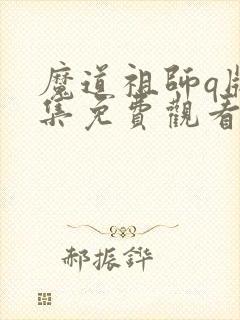 魔道祖師q版
集免費觀看
郝振鏵